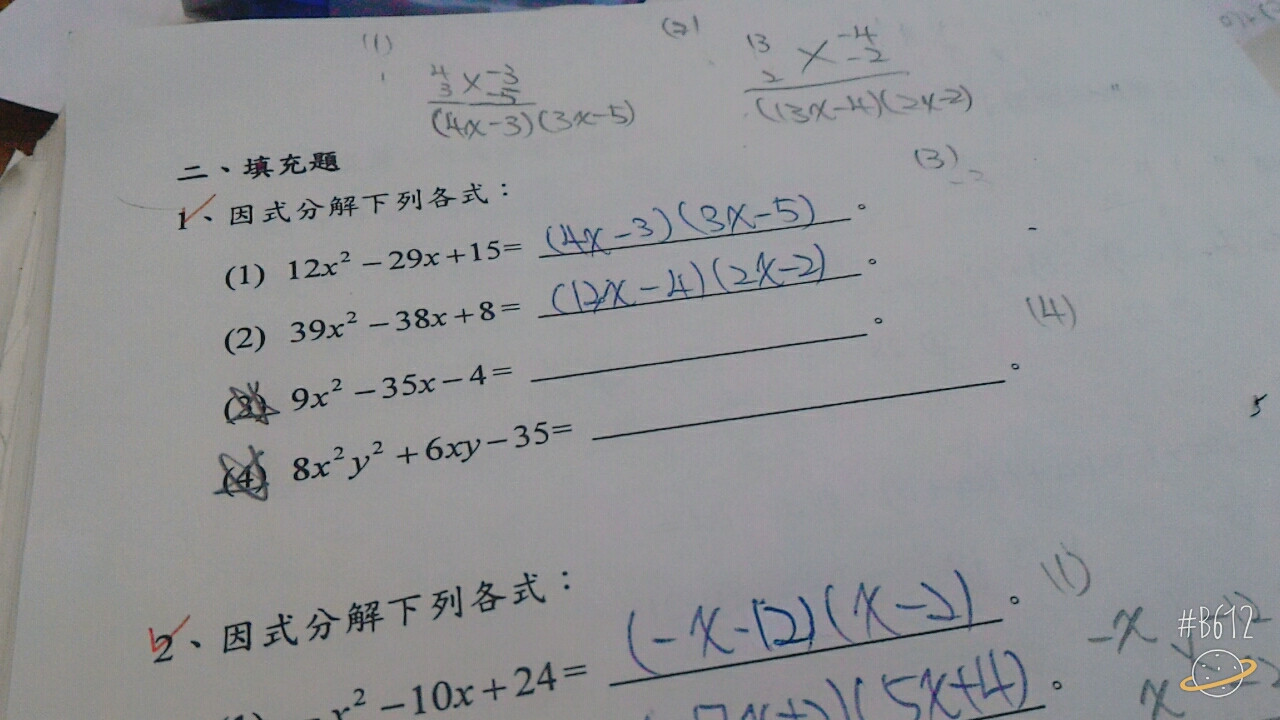 (1)
4 × -3
3 -5
(4x-3)(3x-5)
(2)
13 × -4
2 -2
(13x-4)(2x-2)
二、填充題
1、因式分解下列各式：
(1) 12x² − 29x + 15 = (4x-3)(3x-5)。
(2) 39x² − 38x + 8 = (12x-4)(2x-2)。
(3) 9x² − 35x − 4 = 。
(4) 8x²y² + 6xy − 35 = 。
(3)
(4)
5
2、因式分解下列各式：
−x² − 10x + 24 = (-x-12)(x-2)。
(5x+4)。
(1)
-x
x
#B612